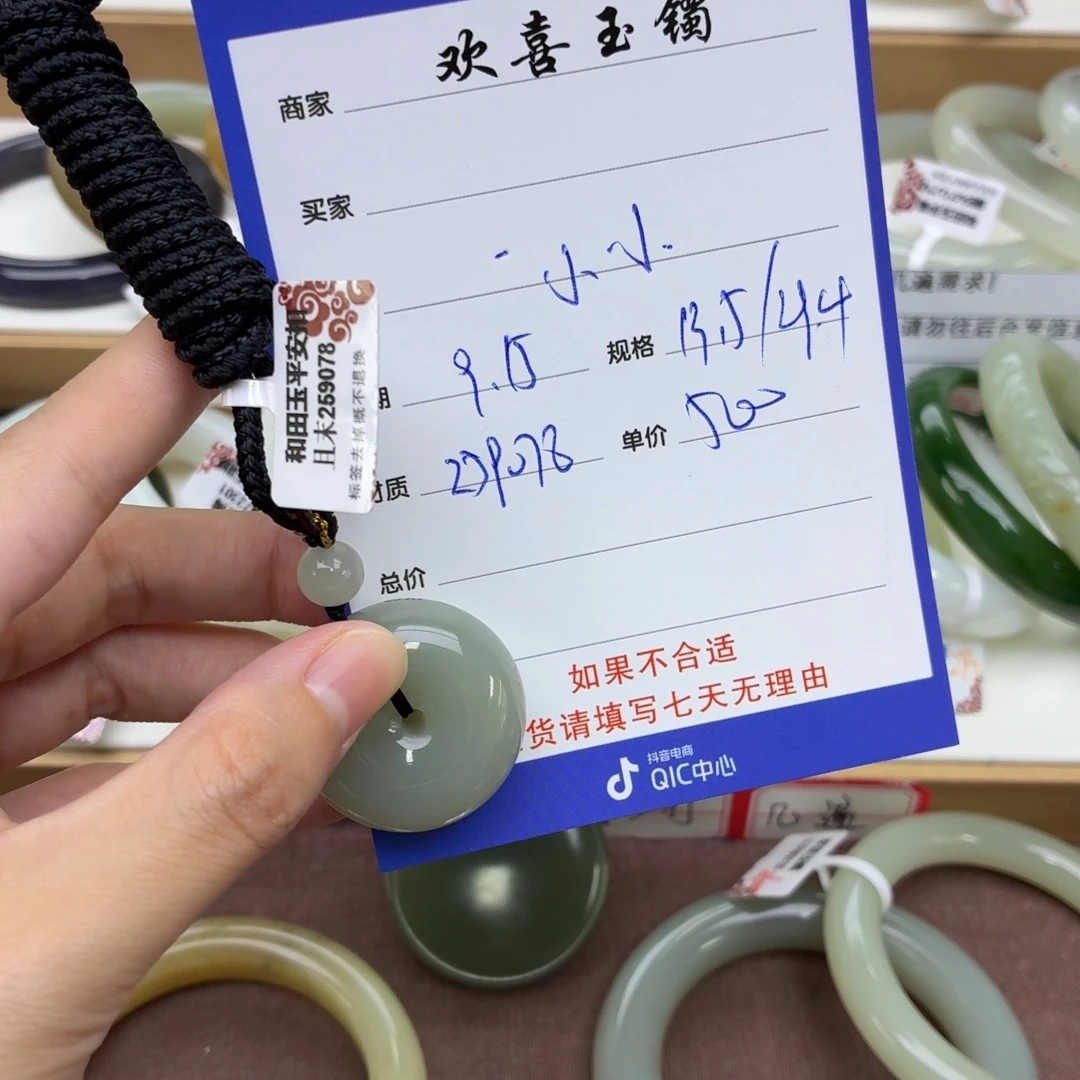 欢喜玉镯
商家
买家
小小
期 9.15
规格 13.5/44
材质 259078
单价 500
总价
如果不合适
货请填写七天无理由
抖音电商
QIC中心
和田玉平安扣
且末259078
标签去掉概不退换
几道需求!